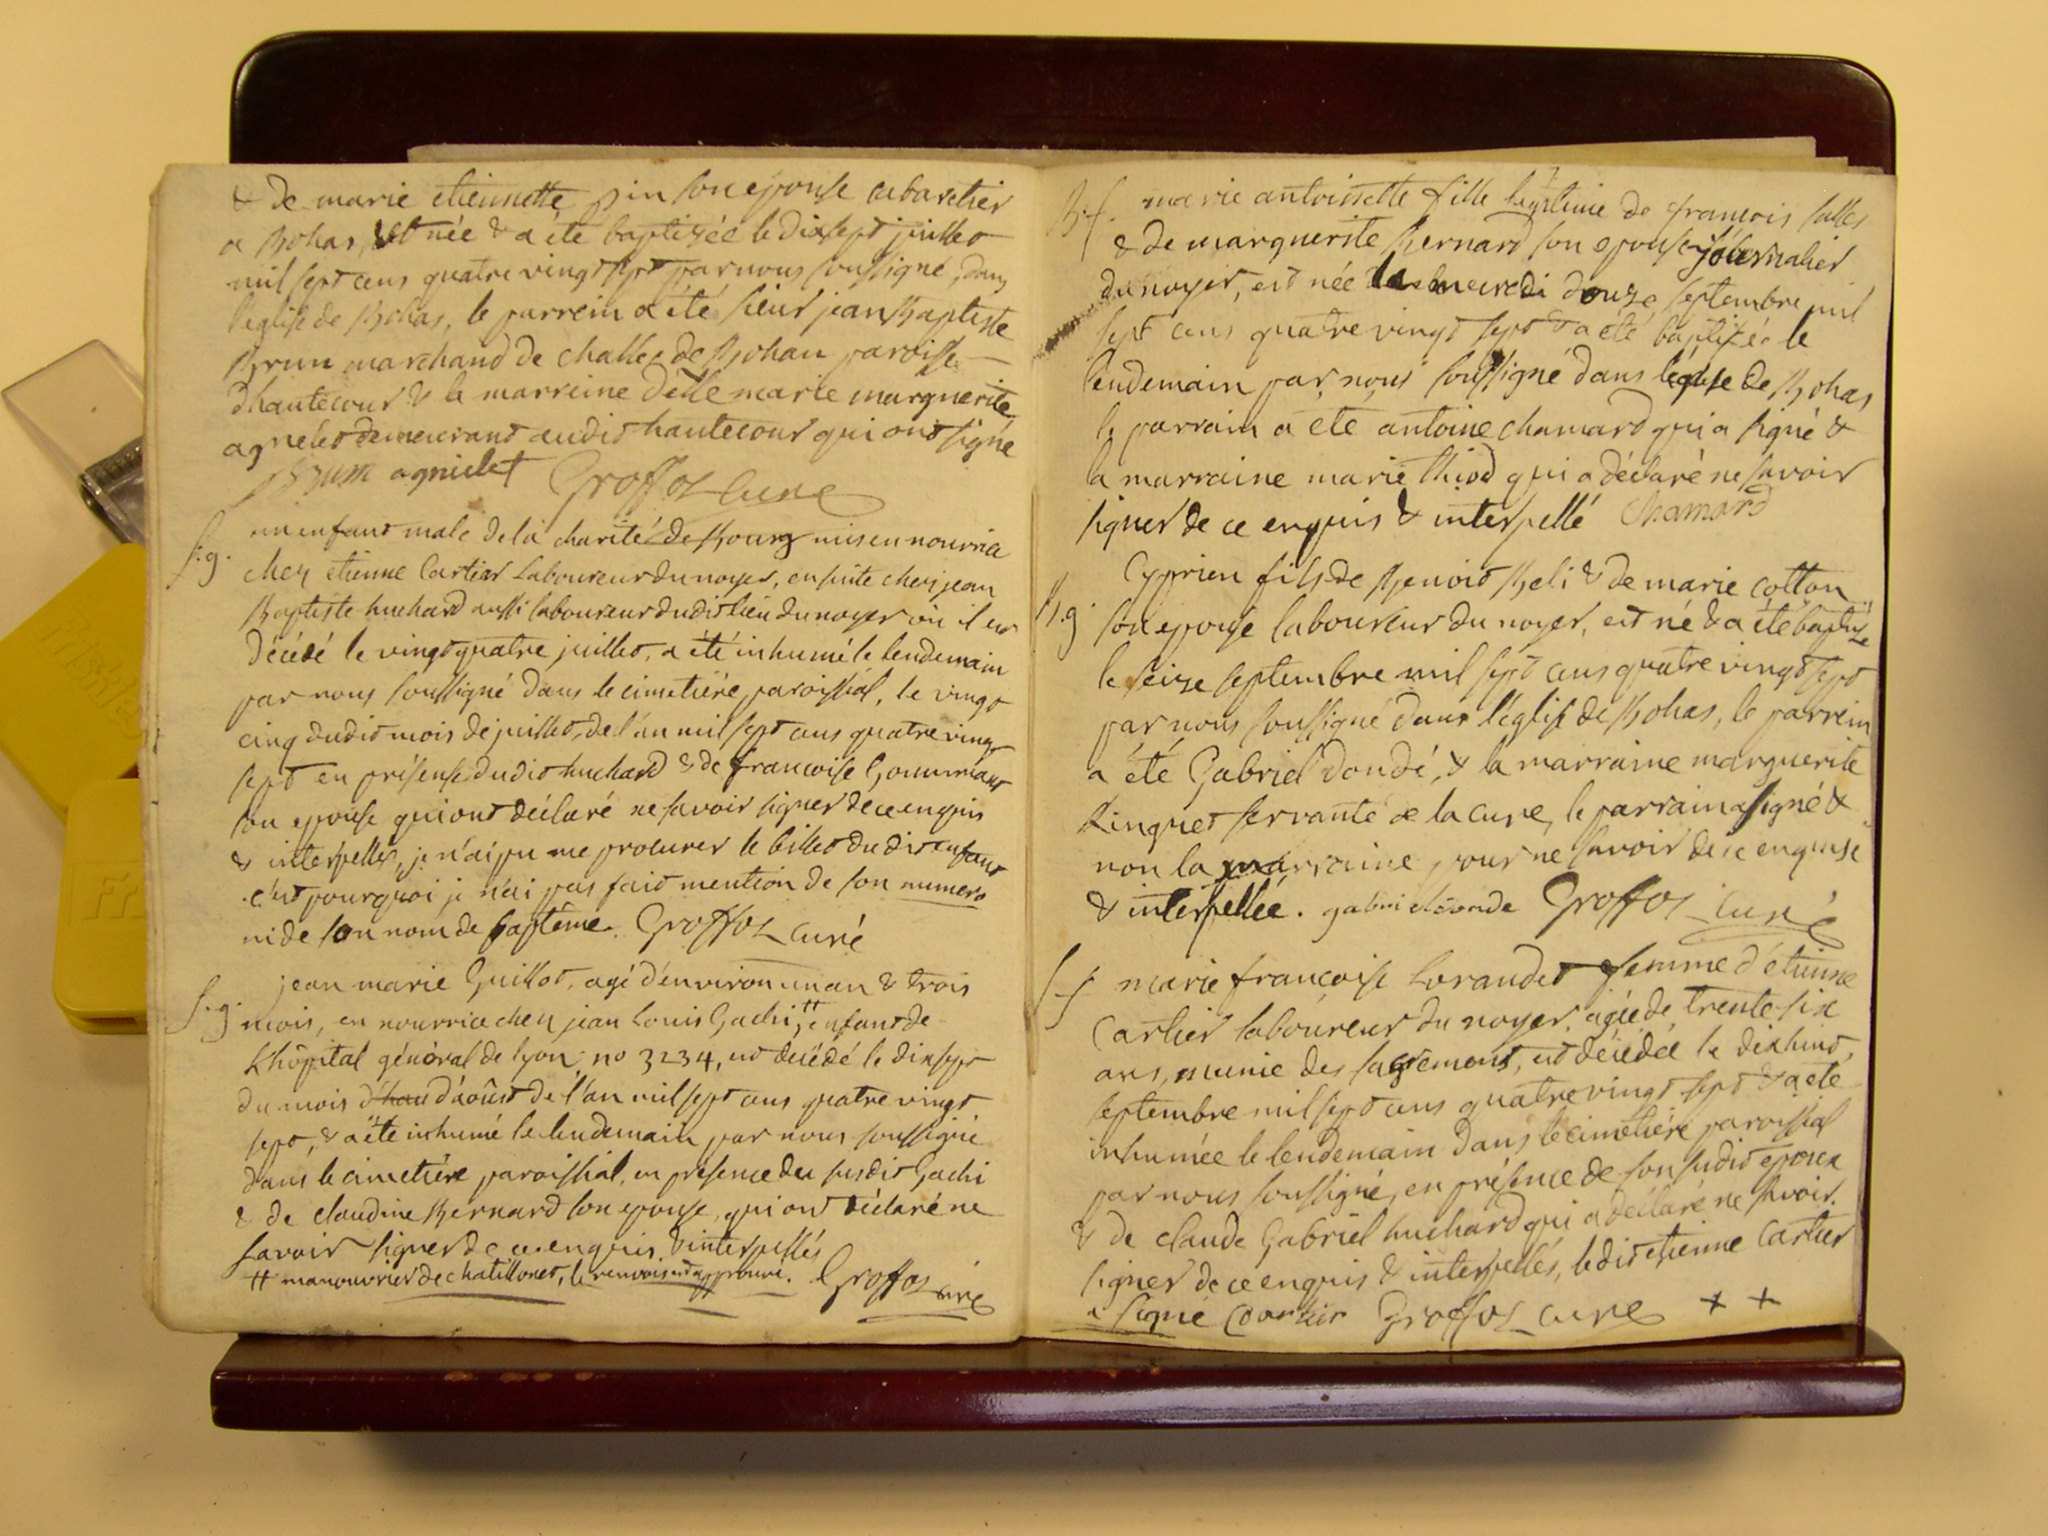 & de marie etiennette pin son epouse cabaretier
a Bohas, est née & a été baptizée le dixsept juillet
mil sept cens quatre vingt sept par nous soussigné, dans
l'eglise de Bohas, le parrein a été sieur jean Baptiste
Brun marchand de challes de Bohan paroisse
d'hautecour & la marreine delle marie marguerite
agnelet demeurant audit hautecour qui ont signé
Brun agnielet Groffoz curé
s.g. un enfant male de la charité de Bourg mis en nourrice
chez etienne Cartier Laboureur du noyer, ensuite chez jean
Baptiste huchard aussi laboureur dudit lieu du noyer où il est
décédé le vingt quatre juillet, a été inhumé le lendemain
par nous soussigné dans le cimetière paroissial, le vingt
cinq dudit mois de juillet, de l'an mil sept cens quatre vingt
sept en présense dudit huchard & de francoise
son epouse qui ont déclaré ne savoir signer de ce enquis
& interpellés, je n'ai pu me procurer le billet dudit enfant
c'est pourquoi je n'ai pas fait mention de son numero
ni de son nom de baptême. Groffoz curé
s.g. jean marie Guillot, agé d'environ un an & trois
mois, en nourrice chez jean Louis Gachi, ++ enfant de
L'hôpital général de lyon, no 3234, est décédé le dixsept
du mois d'hau d'août de l'an mil sept cens quatre vingt
sept, & a été inhumé le lendemain par nous soussigné
dans le cimetière paroissial, en présence du susdit Gachi
& de claudine Bernard son epouse, qui ont déclaré ne
savoir signer de ce enquis & interpellés
++ manouvrier de chatillonet, le renvois est approuvé. Groffoz curé
B.f. marie antoinette fille legitime de francois salles
& de marguerite Bernard son epouse journalier
du noyer, est née le mercredi douze septembre mil
sept cens quatre vingt sept & a été baptizée le
lendemain par nous soussigné dans l'église de Bohas
le parrain a été antoine chamard qui a signé &
la marraine marie thiod qui a déclaré ne savoir
signer de ce enquis & interpellé Chamard
B.g. Cyprien fils de Benoit Beli & de marie cotton
son epouse laboureur du noyer, est né & a été baptizé
le seize septembre mil sept cens quatre vingt sept
par nous soussigné dans l'église de Bohas, le parrein
a été Gabriel dondé, & la marraine marguerite
servante de la cure, le parrain a signé &
non la marraine pour ne savoir de ce enquise
& interpellée. gabriel donde Groffoz curé
s.f. marie francoise Lorandet femme d'étienne
Cartier laboureur du noyer, agée de trente six
ans, munie des sacremens, est décédée le dixhuit
septembre mil sept cens quatre vingt sept & a été
inhumée le lendemain dans le cimetière paroissial
par nous soussigné, en présence de son sudit epoux
& de claude Gabriel huchard qui a déclaré ne savoir
signer de ce enquis & interpellés, ledit etienne Cartier
a signé Cartier Groffoz curé + +